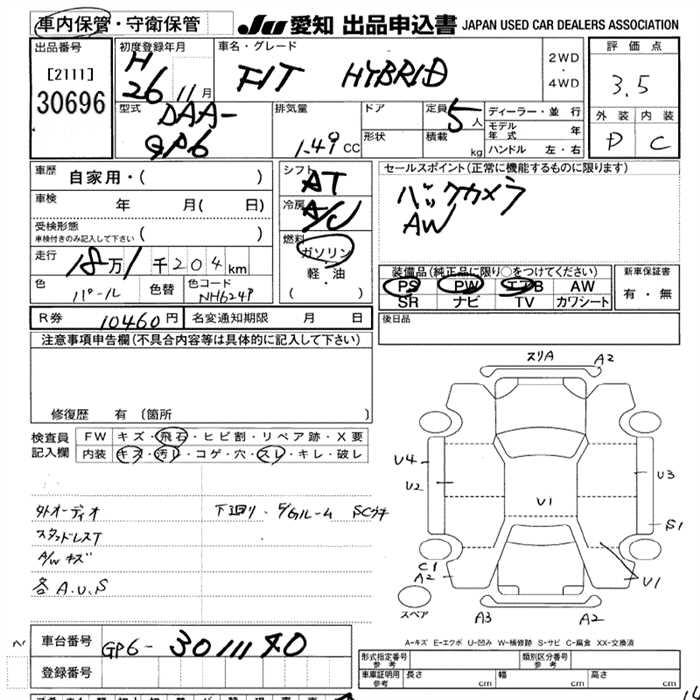 車内保管・守衛保管
JU 愛知 出品申込書 JAPAN USED CAR DEALERS ASSOCIATION
出品番号
[2111]
30696
初度登録年月
H
26 11月
車名・グレード
FIT HYBRID
2WD
・
4WD
評価点
3.5
外装 内装
D C
型式
DAA-
GP6
排気量
1.49 CC
ドア
形状
定員 5 人
積載 kg
ディーラー・並行
モデル年式 年
ハンドル 左・右
車歴 自家用・( )
車検 年 月( 日)
受検形態
車検付きのみ記入して下さい ( )
走行 18万1千204km
色 パール
色替
色コード NH624P
シフト AT
冷房 A/C
燃料
ガソリン
軽・油
( )
セールスポイント(正常に機能するものに限ります)
バックカメラ
AW
装備品(純正品に限り○をつけてください)
PS PW エアB AW
SR ナビ TV カワシート
新車保証書
有・無
R券 10460円 名変通知期限 月 日
後日品
注意事項申告欄(不具合内容等は具体的に記入して下さい)
修復歴 有(箇所
検査員記入欄
FW キズ・飛石・ヒビ割・リペア跡・X要
内装 キズ・汚レ・コゲ・穴・スレ・キレ・破レ
外オーディオ
スタッドレスT
A/Wキズ
各A.U.S
下廻り・E/Gルーム SCウキ
スリA A2
U4
U2
U1
U3
S1
C1
A2
U1
A3
A2
スペア
A-キズ E-エクボ U-凹み W-補修跡 S-サビ C-腐食 XX-交換済
車台番号 GP6-3011140
登録番号
形式指定番号
参考
類別区分番号
参考
車庫証明用
参考
長さ cm
幅 cm
高さ cm